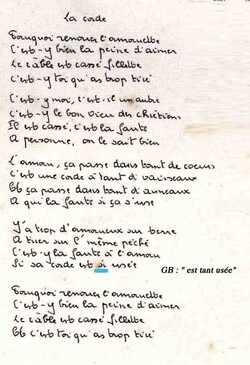 La corde
Pourquoi renouer l'amourette
C'est-y bien la peine d'aimer
Le câble est cassé fillette
C'est-y toi qu'as trop tiré
C'est-y moi, c'est-il un autre
C'est-y le bon Dieu des Chrétiens
Il est cassé, c'est la faute
A personne, on le sait bien
L'amour, ça passe dans tant de coeurs
C'est une corde à tant d'vaisseaux
Et ça passe dans tant d'anneaux
A qui la faute si ça s'use
Y'a trop d'amoureux sur terre
A tirer sur l'même péché
C'est-y la faute à l'amour
Si sa corde est si usée
GB : " est tant usée"
Pourquoi renouer l'amourette
C'est-y bien la peine d'aimer
Le câble est cassé fillette
Et c'est toi qu'as trop tiré